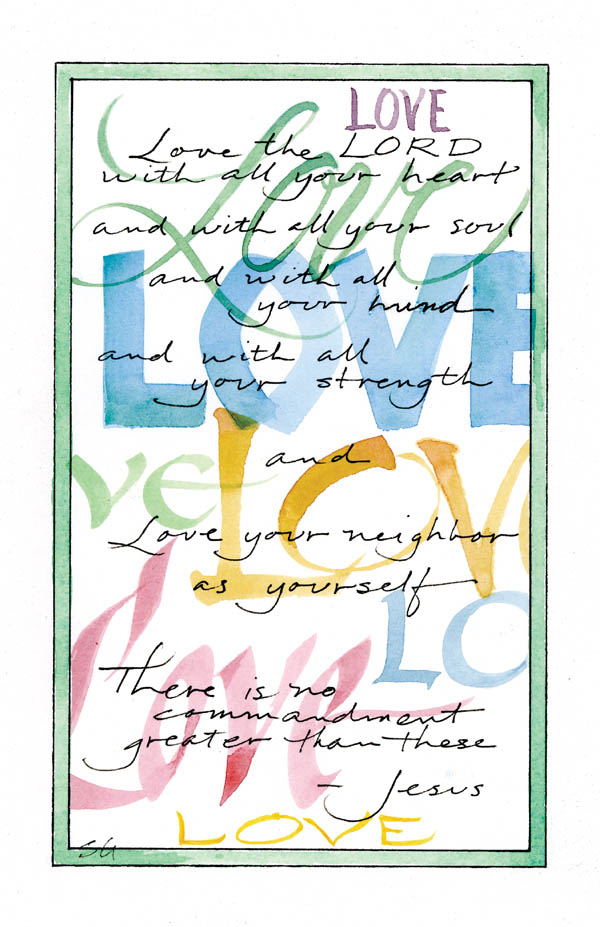 LOVE
Love
Love the LORD
with all your heart
and with all your soul
LOVE
and with all
your mind
and with all
your strength
LOV
and
VE
Love your neighbor
as yourself
LO
Love
There is no
commandment
greater than these
- Jesus
LOVE
SG